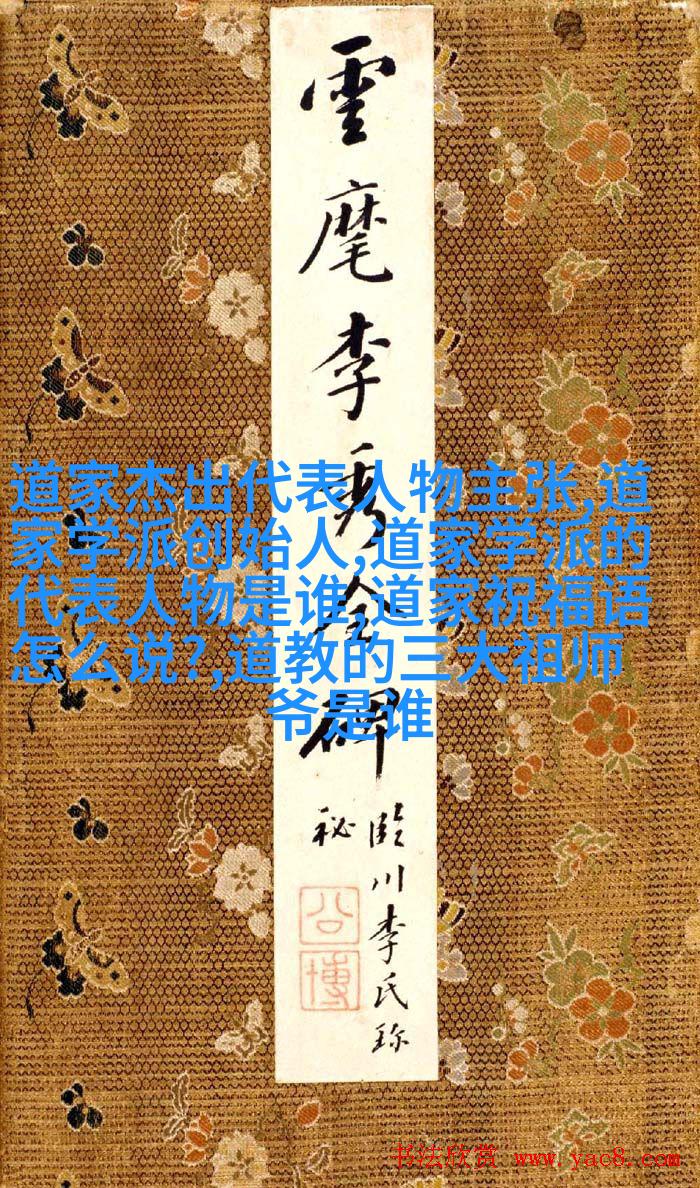 雲麾李秀全碑
臨川李氏珍
秘
公博
道家杰出代表人物主张,道
家学派创始人,道家学派的
代表人物是谁,道家祝福语
怎么说?,道教的三大祖师
爷是谁
书法欣赏 www.yac8.com